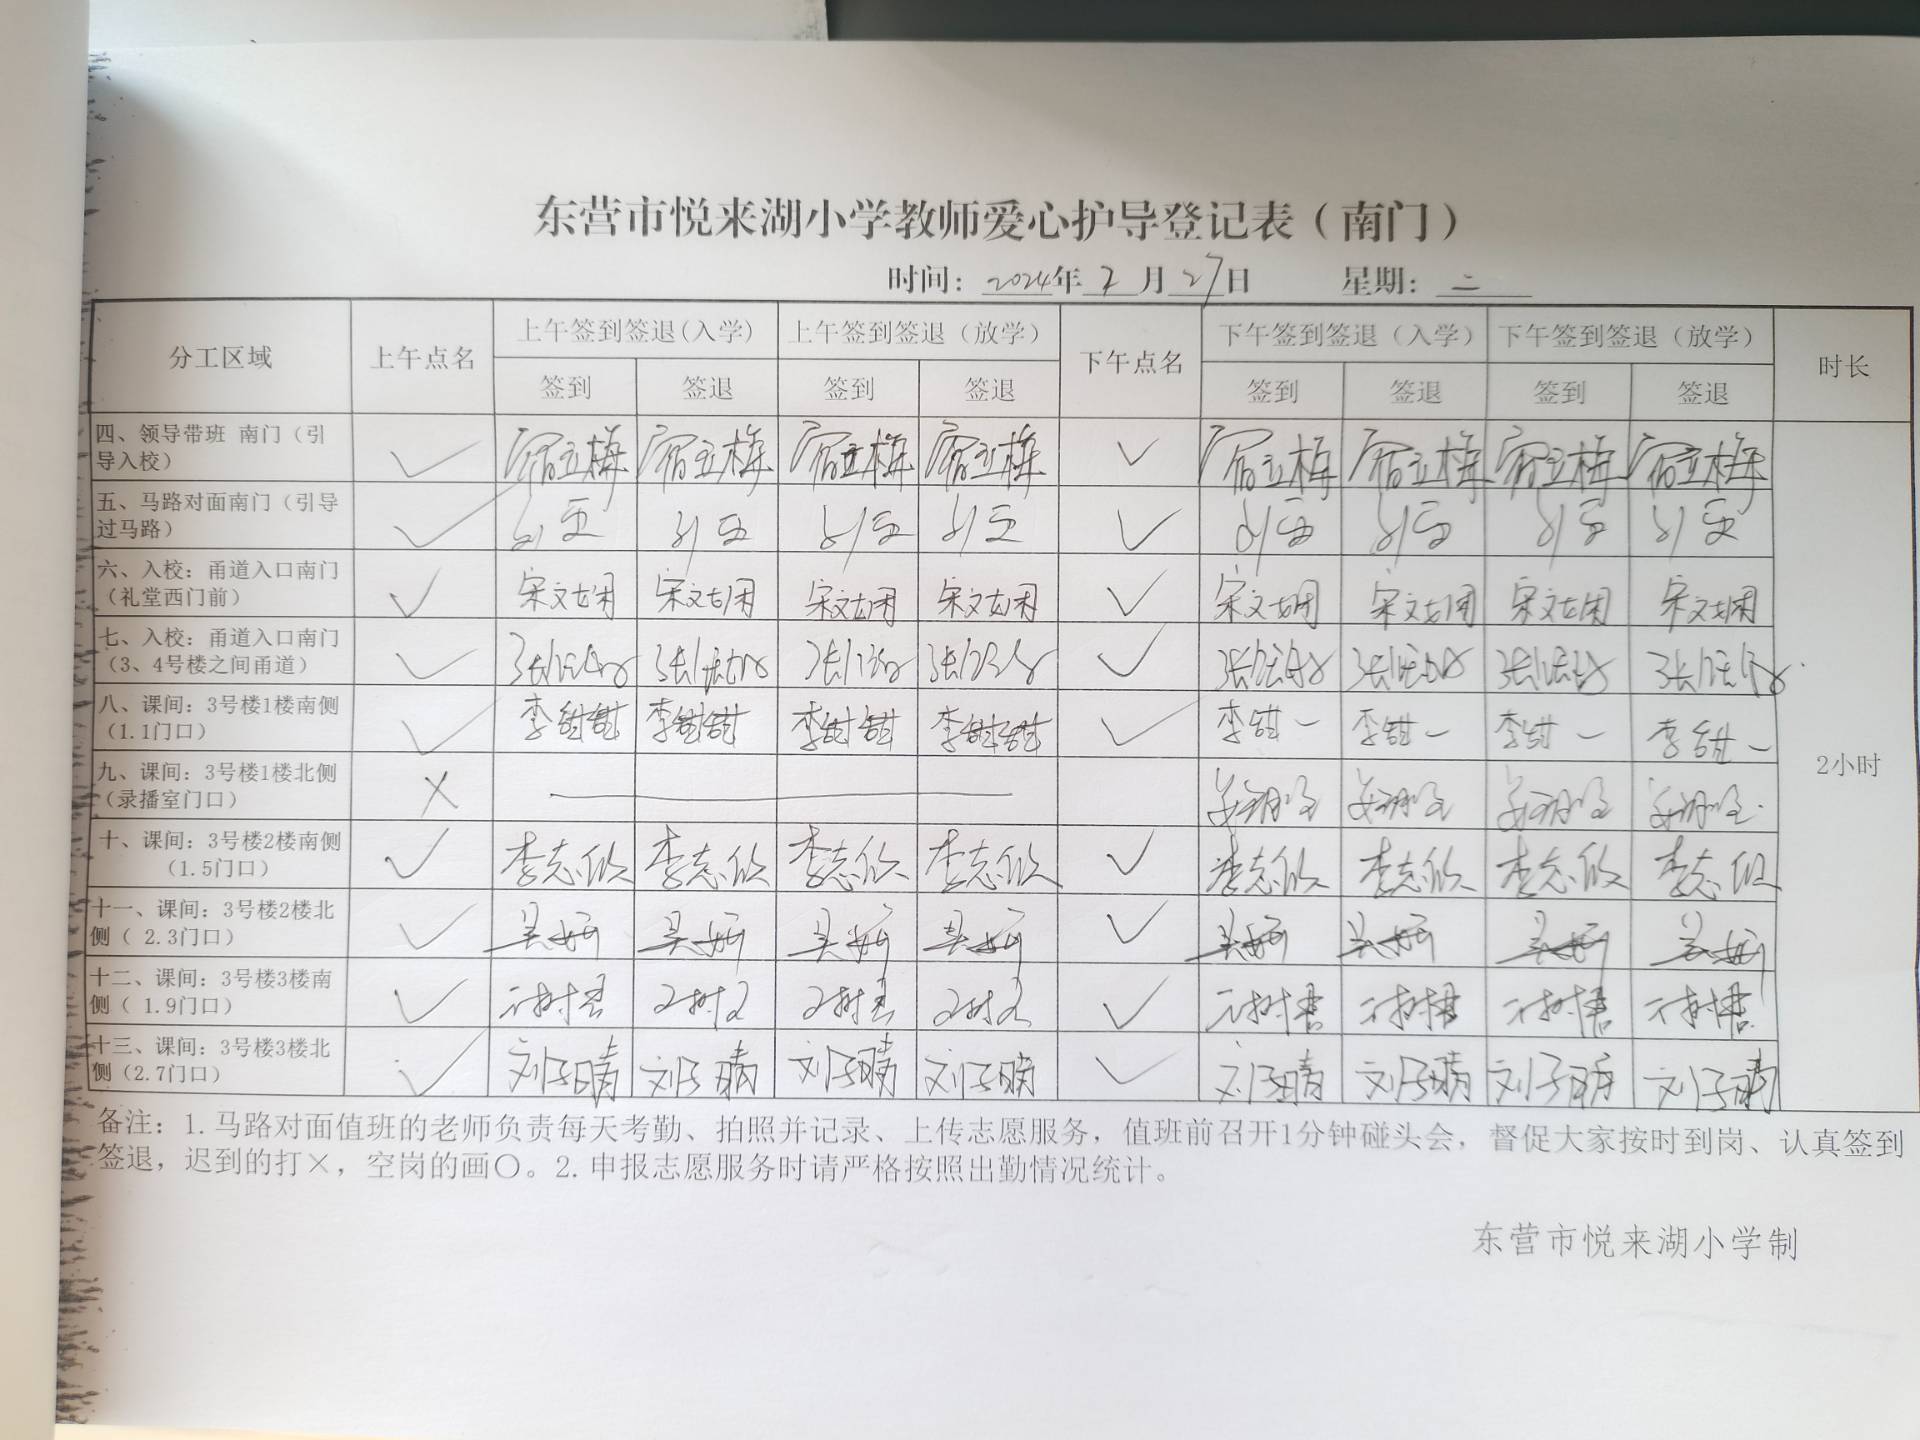 东营市悦来湖小学教师爱心护导登记表（南门）
时间：2024年2月27日 星期：二
分工区域 上午点名 上午签到签退(入学) 上午签到签退（放学） 下午点名 下午签到签退（入学） 下午签到签退（放学） 时长
签到 签退 签到 签退 签到 签退 签到 签退
四、领导带班 南门（引
导入校）
✓ 宿立梅 宿立梅 宿立梅 宿立梅 ✓ 宿立梅 宿立梅 宿立梅 宿立梅
五、马路对面南门（引导
过马路）
✓ ✓
六、入校：甬道入口南门
（礼堂西门前）
✓ 宋文 宋文 宋文 宋文 ✓ 宋文 宋文 宋文 宋文
七、入校：甬道入口南门
（3、4号楼之间甬道）
✓ 张 张 张 张 ✓ 张 张 张 张
八、课间：3号楼1楼南侧
（1.1门口）
✓ 李甜甜 李甜甜 李甜甜 李甜甜 ✓ 李甜一 李甜一 李甜一 李甜一
2小时
九、课间：3号楼1楼北侧
（录播室门口）
×
十、课间：3号楼2楼南侧
（1.5门口）
✓ 李志欣 李志欣 李志欣 李志欣 ✓ 李志欣 李志欣 李志欣 李志欣
十一、课间：3号楼2楼北
侧（ 2.3门口）
✓ 吴妍 吴妍 吴妍 吴妍 ✓ 吴妍 吴妍 吴妍 吴妍
十二、课间：3号楼3楼南
侧（ 1.9门口）
✓ ✓
十三、课间：3号楼3楼北
侧（2.7门口）
✓ 刘子晴 刘子晴 刘子晴 刘子晴 ✓ 刘子晴 刘子晴 刘子晴 刘子晴
备注：1.马路对面值班的老师负责每天考勤、拍照并记录、上传志愿服务，值班前召开1分钟碰头会，督促大家按时到岗、认真签到
签退，迟到的打×，空岗的画〇。2.申报志愿服务时请严格按照出勤情况统计。
东营市悦来湖小学制